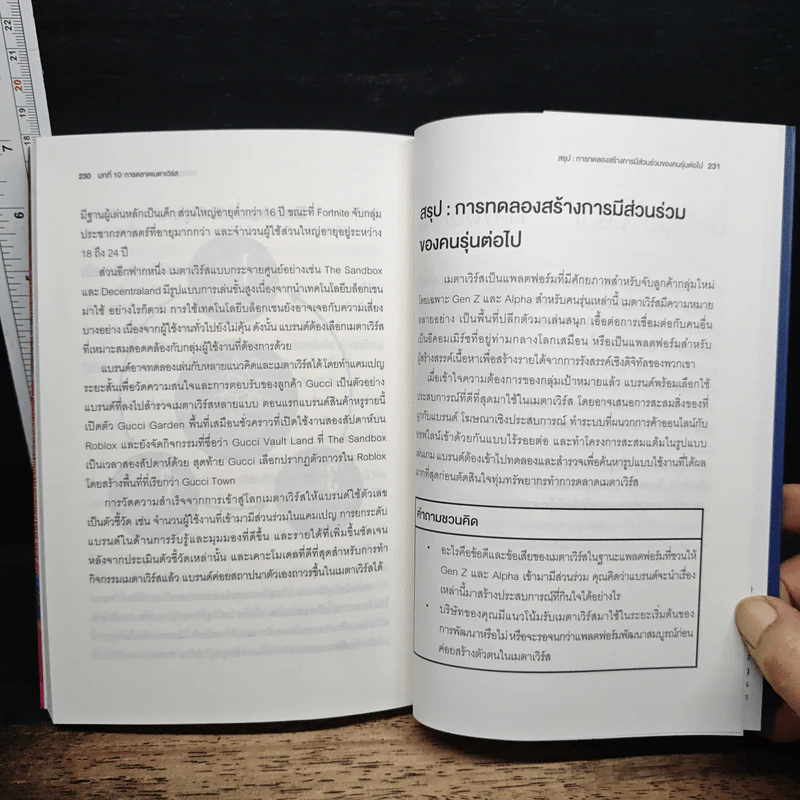 230 บทที่ 10 การตลาดเมตาเวิร์ส
มีฐานผู้เล่นหลักเป็นเด็ก ส่วนใหญ่อายุต่ำกว่า 16 ปี ขณะที่ Fortnite จับกลุ่ม
ประชากรศาสตร์ที่อายุมากกว่า และจำนวนผู้ใช้ส่วนใหญ่อายุอยู่ระหว่าง
18 ถึง 24 ปี
ส่วนอีกฟากหนึ่ง เมตาเวิร์สแบบกระจายศูนย์อย่างเช่น The Sandbox
และ Decentraland มีรูปแบบการเล่นขั้นสูงเนื่องจากนำเทคโนโลยีบล็อกเชน
มาใช้ อย่างไรก็ตาม การใช้เทคโนโลยีบล็อกเชนยังอาจเจอกับความเสี่ยง
บางอย่าง เนื่องจากผู้ใช้งานทั่วไปยังไม่คุ้น ดังนั้น แบรนด์ต้องเลือกเมตาเวิร์ส
ที่เหมาะสมสอดคล้องกับกลุ่มผู้ใช้งานที่ต้องการด้วย
แบรนด์อาจทดลองเล่นกับหลายแนวคิดและเมตาเวิร์สได้ โดยทำแคมเปญ
ระยะสั้นเพื่อวัดความสนใจและการตอบรับของลูกค้า Gucci เป็นตัวอย่าง
แบรนด์ที่ลงไปสำรวจเมตาเวิร์สหลายแบบ ตอนแรกแบรนด์สินค้าหรูรายนี้
เปิดตัว Gucci Garden พื้นที่เสมือนชั่วคราวที่เปิดใช้งานสองสัปดาห์บน
Roblox และยังจัดกิจกรรมที่ชื่อว่า Gucci Vault Land ที่ The Sandbox
เป็นเวลาสองสัปดาห์ด้วย สุดท้าย Gucci เลือกปรากฏตัวถาวรใน Roblox
โดยสร้างพื้นที่ที่เรียกว่า Gucci Town
การวัดความสำเร็จจากการเข้าสู่โลกเมตาเวิร์สให้แบรนด์ใช้ตัวเลข
เป็นตัวชี้วัด เช่น จำนวนผู้ใช้งานที่เข้ามามีส่วนร่วมในแคมเปญ การยกระดับ
แบรนด์ในด้านการรับรู้และมุมมองที่ดีขึ้น และรายได้ที่เพิ่มขึ้นชัดเจน
หลังจากประเมินตัวชี้วัดเหล่านั้น และเคาะโมเดลที่ดีที่สุดสำหรับการทำ
กิจกรรมเมตาเวิร์สแล้ว แบรนด์ค่อยสถาปนาตัวเองถาวรขึ้นในเมตาเวิร์สได้
สรุป : การทดลองสร้างการมีส่วนร่วมของคนรุ่นต่อไป 231
สรุป : การทดลองสร้างการมีส่วนร่วม
ของคนรุ่นต่อไป
เมตาเวิร์สเป็นแพลตฟอร์มที่มีศักยภาพสำหรับจับลูกค้ากลุ่มใหม่
โดยเฉพาะ Gen Z และ Alpha สำหรับคนรุ่นเหล่านี้ เมตาเวิร์สมีความหมาย
หลายอย่าง เป็นพื้นที่ปลีกตัวมาเล่นสนุก เอื้อต่อการเชื่อมต่อกับคนอื่น
เป็นอีคอมเมิร์ซที่อยู่ท่ามกลางโลกเสมือน หรือเป็นแพลตฟอร์มสำหรับ
ผู้สร้างสรรค์เนื้อหาเพื่อสร้างรายได้จากการรังสรรค์เชิงดิจิทัลของพวกเขา
เมื่อเข้าใจความต้องการของกลุ่มเป้าหมายแล้ว แบรนด์พร้อมเลือกใช้
ประสบการณ์ที่ดีที่สุดมาใช้ในเมตาเวิร์ส โดยอาจเสนอการสะสมสิ่งของที่
ผูกกับแบรนด์ โฆษณาเชิงประสบการณ์ ทำระบบที่ผนวกการค้าออนไลน์กับ
ออฟไลน์เข้าด้วยกันแบบไร้รอยต่อ และทำโครงการสะสมแต้มในรูปแบบ
เล่นเกม แบรนด์ต้องเข้าไปทดลองและสำรวจเพื่อค้นหารูปแบบใช้งานที่ได้ผล
มากที่สุดก่อนตัดสินใจทุ่มทรัพยากรทำการตลาดเมตาเวิร์ส
คำถามชวนคิด
• อะไรคือข้อดีและข้อเสียของเมตาเวิร์สในฐานะแพลตฟอร์มที่ชวนให้
Gen Z และ Alpha เข้ามามีส่วนร่วม คุณคิดว่าแบรนด์จะนำเรื่อง
เหล่านี้มาสร้างประสบการณ์ที่กินใจได้อย่างไร
• บริษัทของคุณมีแนวโน้มรับเมตาเวิร์สมาใช้ในระยะเริ่มต้นของ
การพัฒนาหรือไม่ หรือจะรอจนกว่าแพลตฟอร์มพัฒนาสมบูรณ์ก่อน
ค่อยสร้างตัวตนในเมตาเวิร์ส